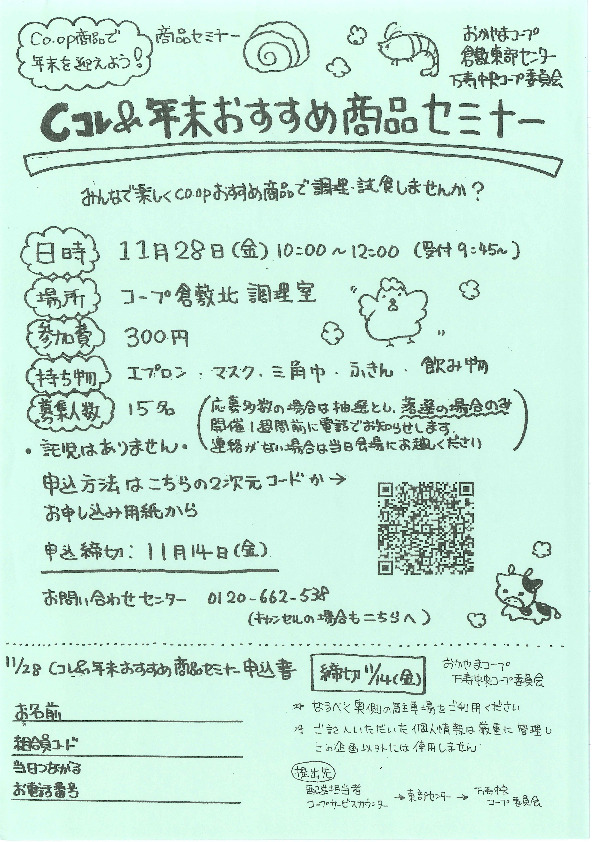 Co-op商品で
年末を迎えよう!
商品セミナー
おかやまコープ
倉敷東部センター
万寿中央コープ委員会
Cコレ&年末おすすめ商品セミナー
みんなで楽しくCO-OPおすすめ商品で調理・試食しませんか?
日時 11月28日(金) 10:00〜12:00 (受付9:45〜)
場所 コープ倉敷北 調理室
参加費 300円
持ち物 エプロン・マスク・三角巾・ふきん・飲み物
募集人数 15名
(応募多数の場合は抽選とし、落選の場合のみ
開催1週間前に電話でお知らせします。
連絡がない場合は当日会場にお越しください)
・託児はありません・
申込方法はこちらの2次元コードか→
お申し込み用紙から
申込締切:11月14日(金)
お問い合わせセンター 0120-662-538
(キャンセルの場合もこちらへ)
11/28 Cコレ&年末おすすめ商品セミナー申込書
締切11/14(金)
おかやまコープ
万寿中央コープ委員会
お名前
組合員コード
当日つながる
お電話番号
※ なるべく奥側の駐車場をご利用ください
※ ご記入いただいた個人情報は厳重に管理し
この企画以外には使用しません
提出先
配達担当者
コープサービスカウンター
→東部センター→
万寿中央
コープ委員会